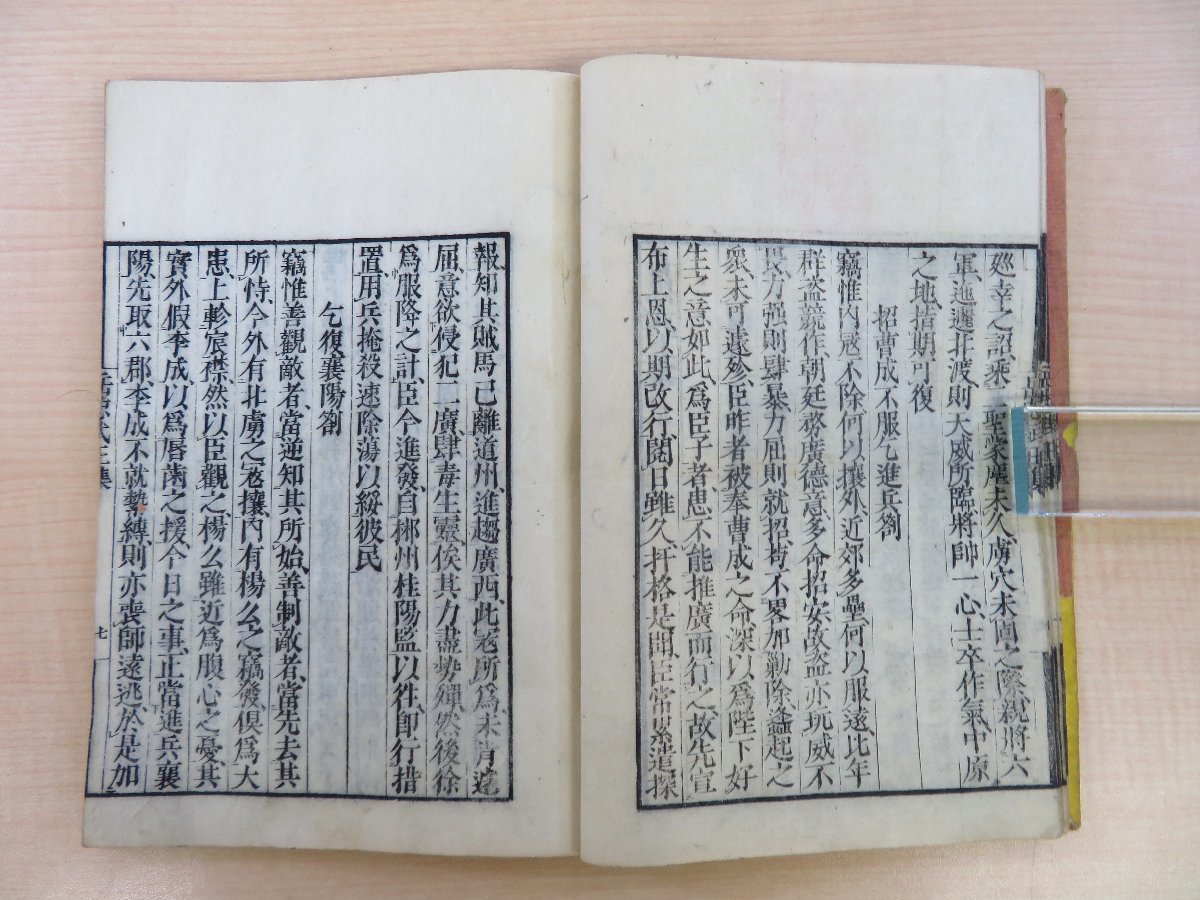 廵幸之詔、乘二聖蒙塵未久、虜穴未固之際、親將六
軍、迤邐北渡、則天威所臨、將帥一心、士卒作氣、中原
之地、指期可復
招曹成不服乞進兵劄
竊惟內㓂不除、何以攘外、近郊多壘、何以服遠、比年
群盜競作、朝廷務廣德意、多命招安、故盜亦玩威不
畏、力强則肆暴、力屈則就招、苟不畧加勦除、蠭起之
衆、未可遽殄、臣昨者被奉曹成之命、深以爲陛下好
生之意如此、爲臣子者、患不能推廣而行之、故先宣
布上恩、以期改行、閱日雖久、扞格是聞、臣常累遣探
報、知其賊馬已離道州、進趨廣西、此㓂所爲、未肯遽
屈、意欲侵犯二廣、肆毒生靈、俟其力盡勢殫、然後徐
爲服降之計、臣今進發、自郴州桂陽監以往、卽行措
置、用兵掩殺、速除蕩以綏彼民
乞復襄陽劄
竊惟善觀敵者、當逆知其所始、善制敵者、當先去其
所恃、今外有北虜之㓂攘、內有楊么之竊發、俱爲大
患、上軫宸襟、然以臣觀之、楊么雖近爲腹心之憂、其
實外假李成、以爲唇齒之援、今日之事、正當進兵襄
陽、先取六郡、李成不就縶縛、則亦喪師遠逃、於是加
七